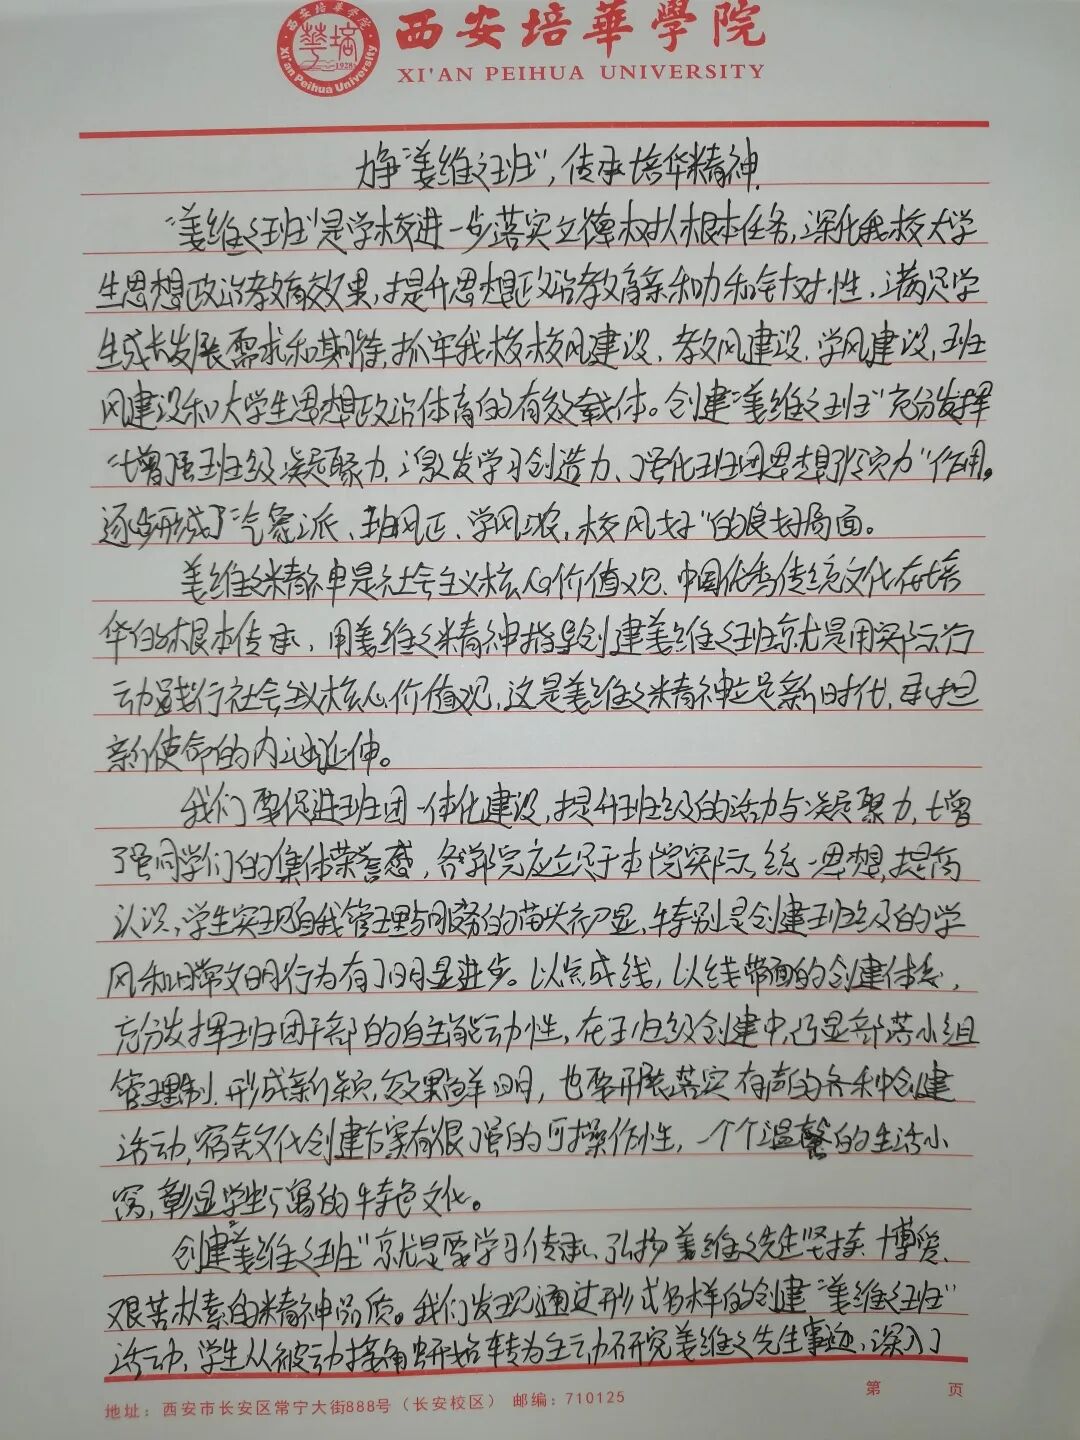 西安培華學院
XI'AN PEIHUA UNIVERSITY
西安培華学院
Xi'an Peihua University
1928
力争"姜维之班",传承培华精神.
"姜维之班"是学校进一步落实立德树人根本任务,深化我校大学
生思想政治教育效果,提升思想政治教育亲和力和针对性,满足学
生成长发展需求和期待,抓牢我校校风建设、教风建设、学风建设,班
风建设和大学生思想政治体育的有效载体。创建"姜维之班"充分发挥
"增强班级凝聚力、激发学习创造力、强化班团思想引领力"作用。
逐步形成了"气象派、班风正、学风浓,校风好"的良好局面。
姜维之精神是社会主义核心价值观、中国优秀传统文化在培
华的根本传承,用姜维之精神指导创建姜维之班就是用实际行
动践行社会主义核心价值观,这是姜维之精神立足新时代,承担
新使命的内涵延伸。
我们要促进班团一体化建设,提升班级的活力与凝聚力,增
强同学们的集体荣誉感,各学院应立足于本院实际,统一思想,提高
认识,学生实现自我管理与服务的苗头初显,特别是创建班级的学
风和日常文明行为有了明显进步。以点成线,以线带面的创建体系,
充分发挥班团干部的自主能动性,在班级创建中,凸显部落小组
管理制、形成新颖,效果鲜明,也要开展落实有声的各种创建
活动,宿舍文化创建方案有很强的可操作性,一个个温馨的生活小
窝,彰显学生公寓的特色文化。
创建"姜维之班"就是要学习传承、弘扬姜维之先生坚持、博爱、
艰苦朴素的精神品质。我们发现通过形式多样的创建"姜维之班"
活动,学生从被动接角虫开始转为主动研究姜维之先生事迹,深入了
第 页
地址:西安市长安区常宁大街888号(长安校区) 邮编:710125